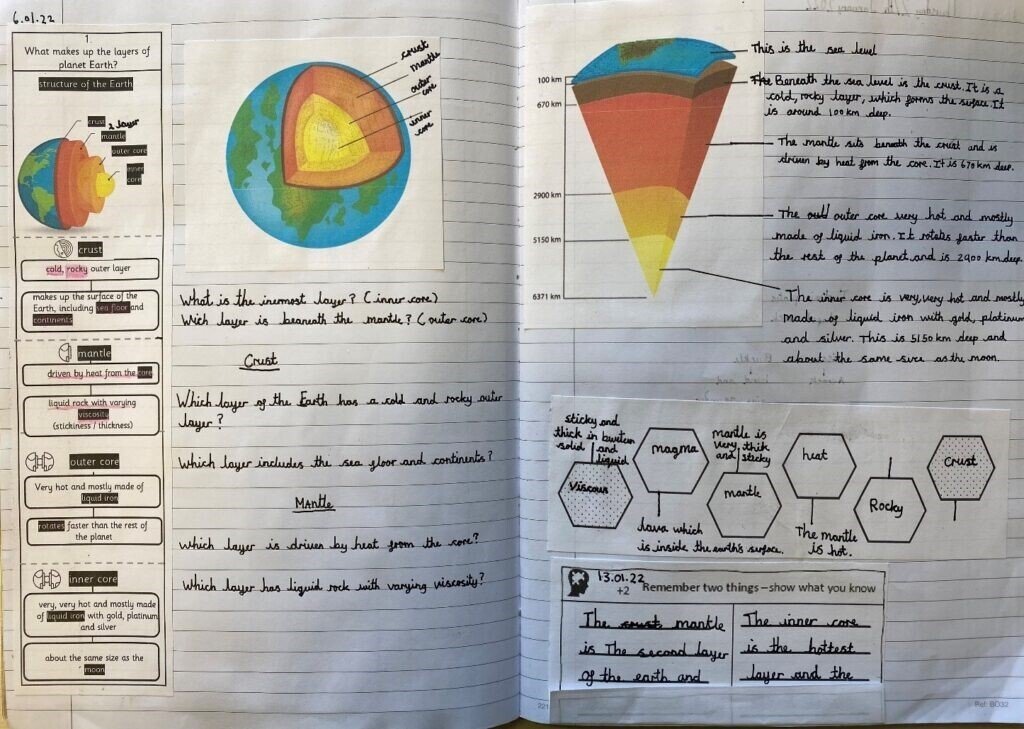 6.01.22
1.
What makes up the layers of
planet Earth?
structure of the Earth
crust
2 layer
mantle
outer core
inner
core
crust
cold, rocky outer layer
makes up the surface of the
Earth, including sea floor and
continents
mantle
driven by heat from the core
liquid rock with varying
viscosity
(stickiness / thickness)
outer core
Very hot and mostly made of
liquid iron
rotates faster than the rest of
the planet
inner core
very, very hot and mostly made
of liquid iron with gold, platinum
and silver
about the same size as the
moon
crust
mantle
outer
core
inner
core
What is the inermost layer? (inner core)
Wich layer is beaneath the mantle? (outer core)
Crust
Which layer of the Earth has a cold and rocky outer
layer?
Which layer includes the sea floor and continents?
Mantle
Which layer is driven by heat from the core?
Which layer has liquid rock with varying viscosity?
100 km
670 km
2900 km
5150 km
6371 km
This is the sea level
The Beneath the sea level is the crust. It is a
cold, rocky layer, which forms the surface. It
is around 100km deep.
The mantle sits beneath the crust and is
driven by heat from the core. It is 670km deep.
The outer core very hot and mostly
made of liquid iron. It rotates faster than
the rest of the planet and is 2900 km deep.
The inner core is very, very hot and mostly
made of liquid iron with gold, platinum
and silver. This is 5150 km deep and
about the same size as the moon.
sticky and
thick in bwteen
solid and
liquid
Viscous
magma
lava which
is inside the earth's surface.
mantle is
very thik
and sticky
mantle
heat
The mantle
is hot.
Rocky
Crust
13.01.22
+2
Remember two things – show what you know
The crust mantle
is The second layer
of the earth and
The inner core
is the hottest
layer and the
221
Ref: BD32